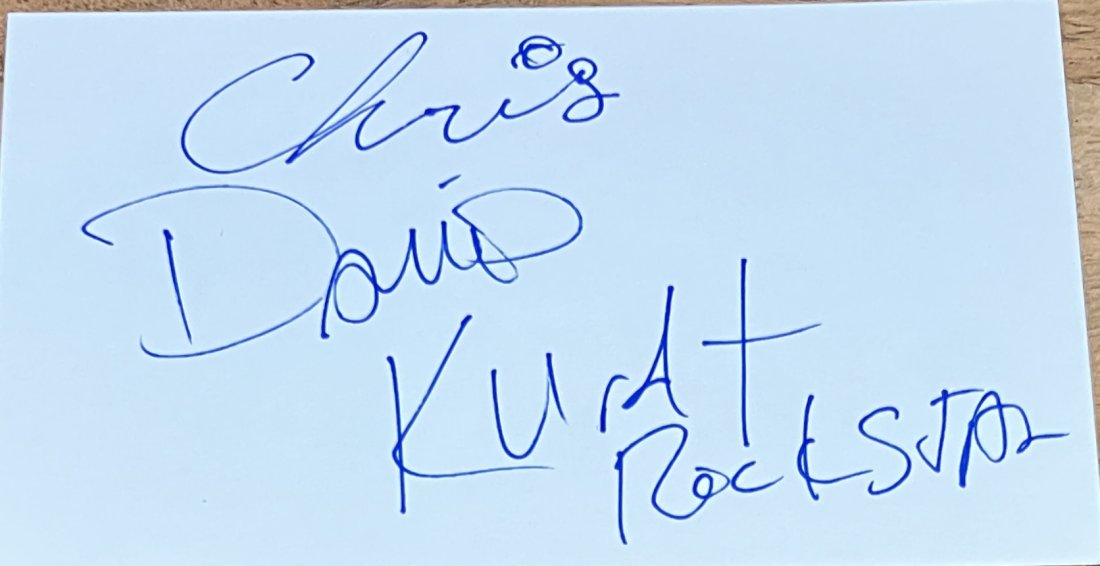 Chris
David
Kurdt
RockSTAR